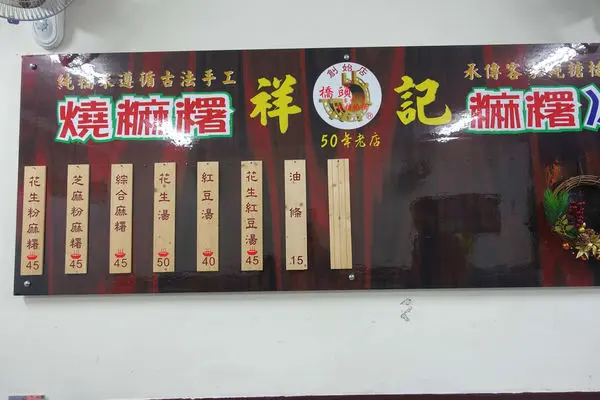 純糯米遵循古法手工
燒麻糬
祥
創始店
橋頭
記
50年老店
承傳客家
麻糬
花生粉麻糬
45
芝麻粉麻糬
45
綜合麻糬
45
花生湯
50
紅豆湯
40
花生紅豆湯
45
油條
15